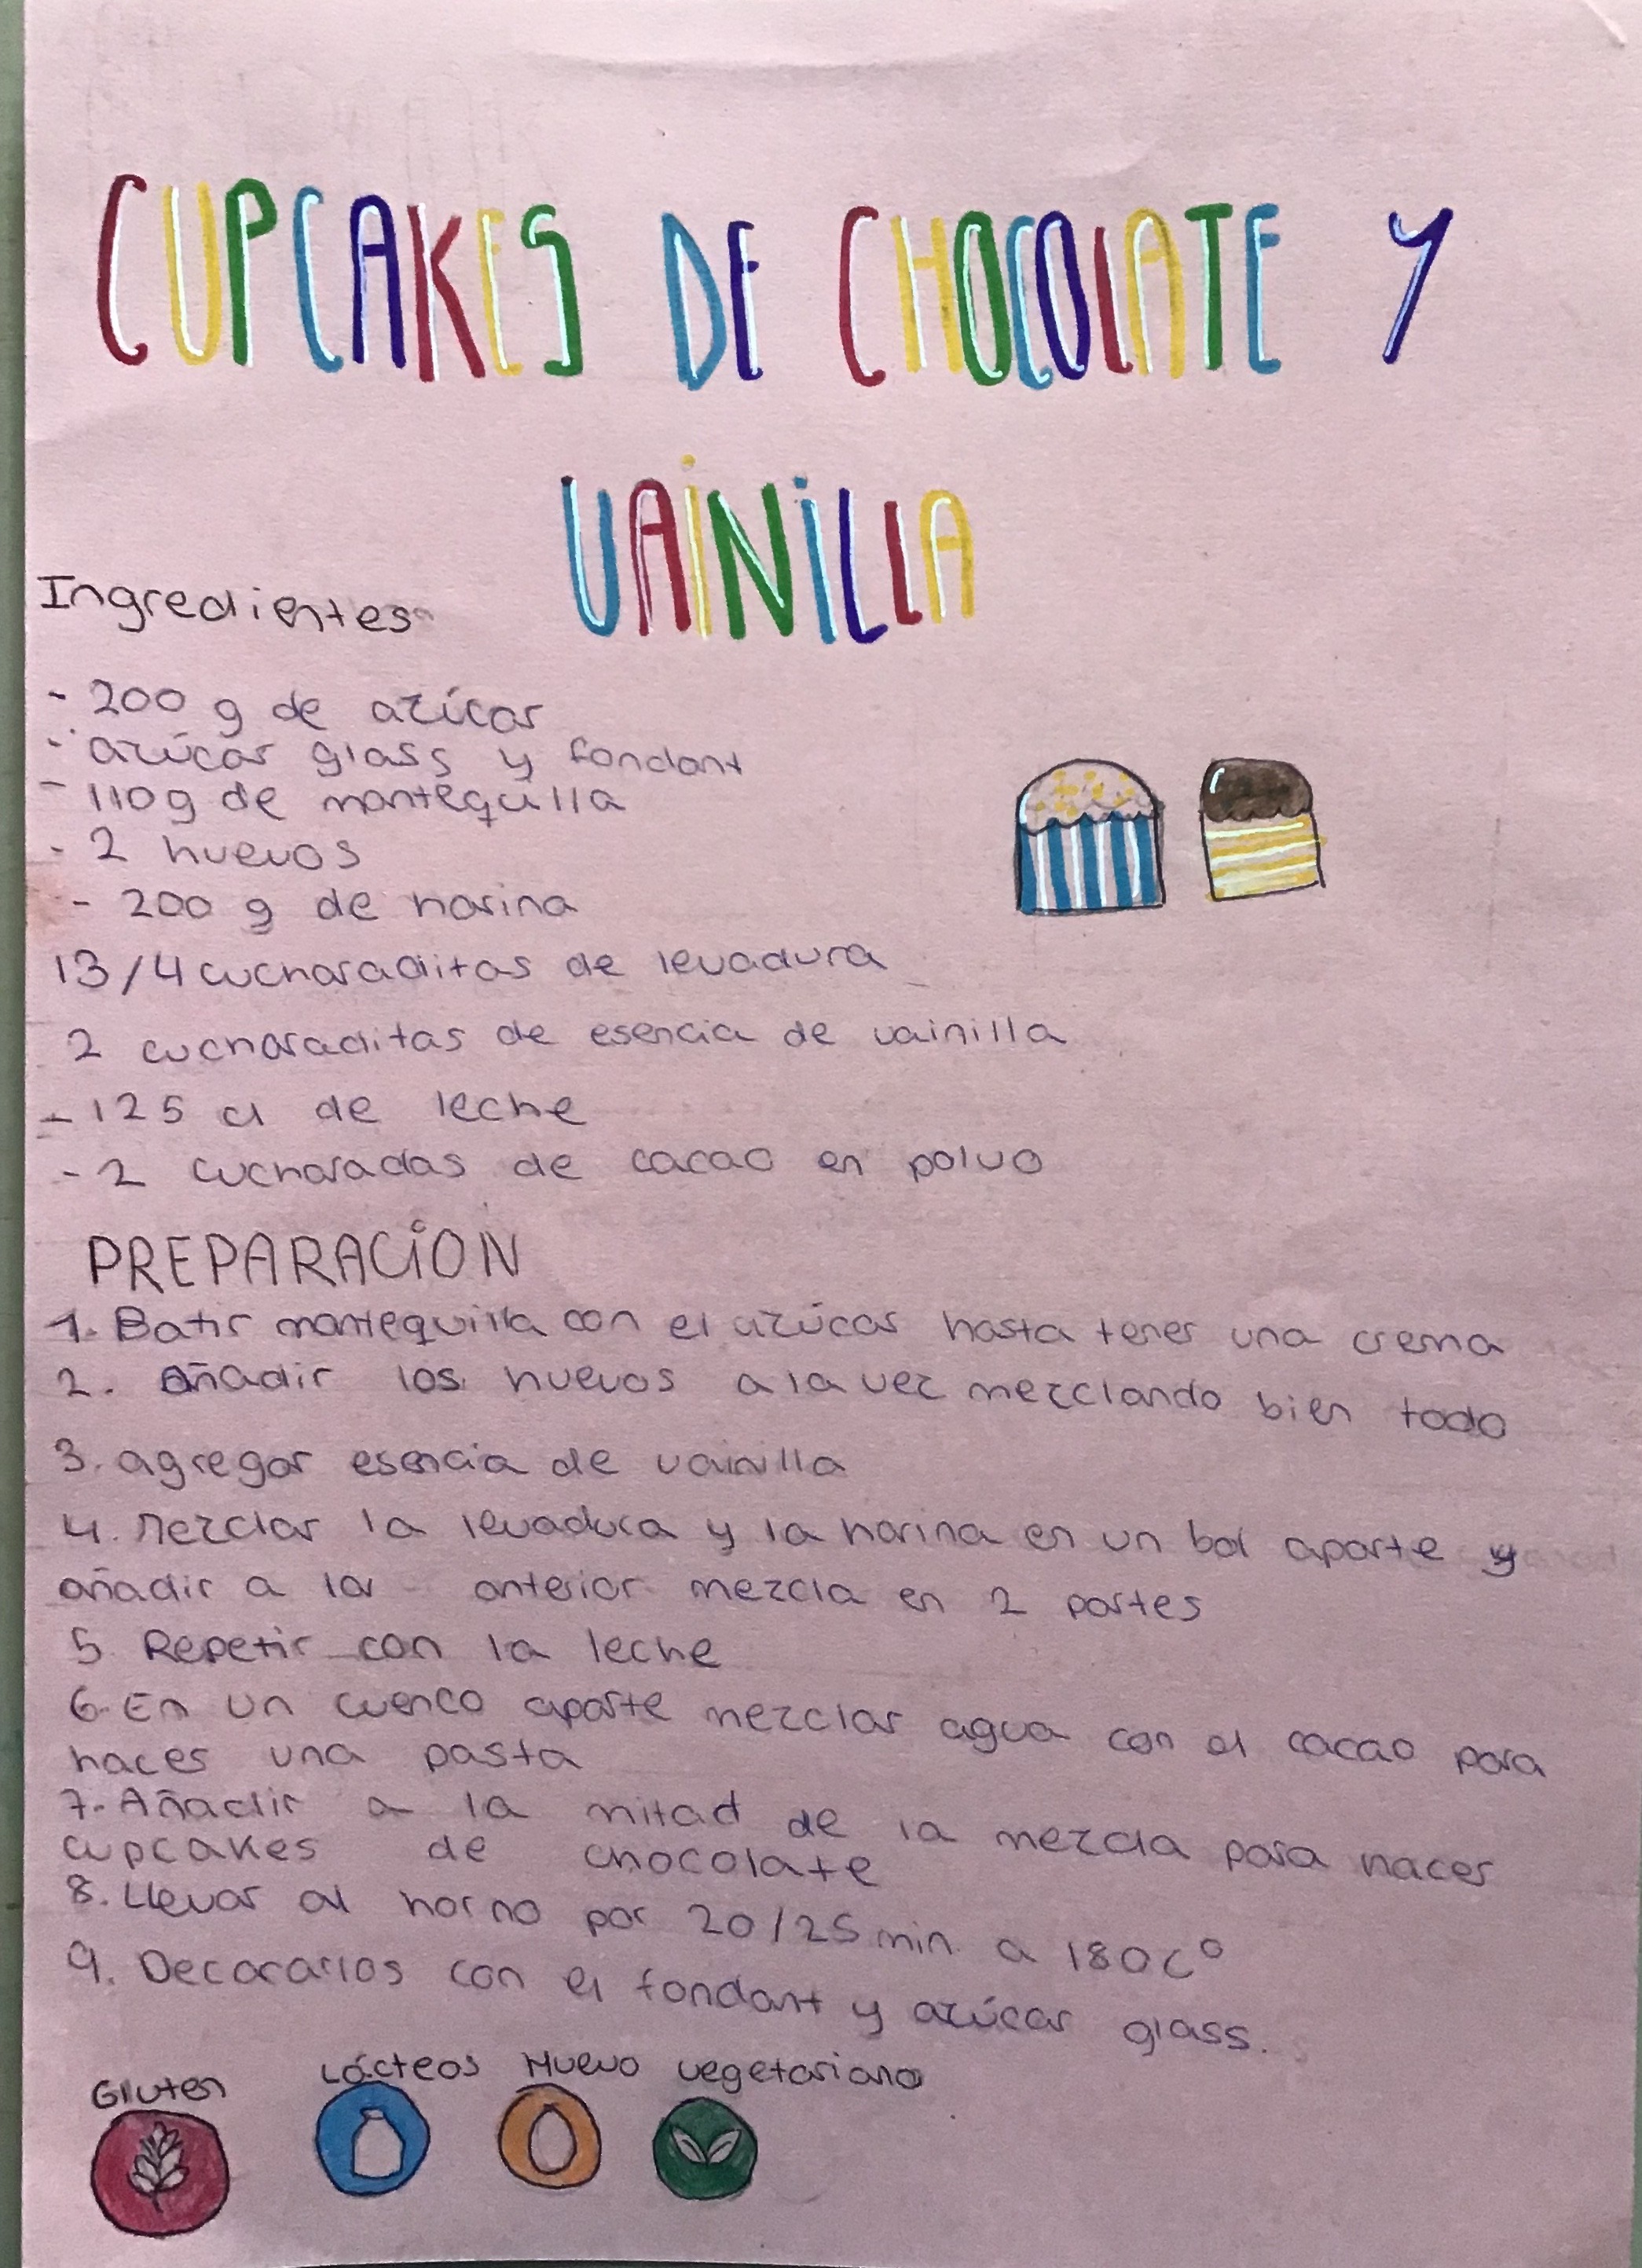 CUPCAKES DE CHOCOLATE Y
VAINILLA
Ingredientes
- 200 g de azúcar
- azúcar glass y fondant
- 110g de mantequilla
- 2 huevos
- 200 g de harina
13/4 cucharaditas de levadura
2 cucharaditas de esencia de vainilla
- 125 cl de leche
- 2 cucharadas de cacao en polvo
PREPARACION
1. Batir mantequilla con el azúcar hasta tener una crema
2. añadir los huevos a la vez mezclando bien todo
3. agregar esencia de vainilla
4. Mezclar la levadura y la harina en un bol aparte y
añadir a la anterior mezcla en 2 partes
5 Repetir con la leche
6. En un cuenco aparte mezclar agua con el cacao para
hacer una pasta
7. Añadir a la mitad de la mezcla para hacer
cupcakes de chocolate
8. Llevar al horno por 20/25 min. a 180 Cº
9. Decorarlos con el fondant y azúcar glass.
Gluten Lácteos Huevo vegetariano